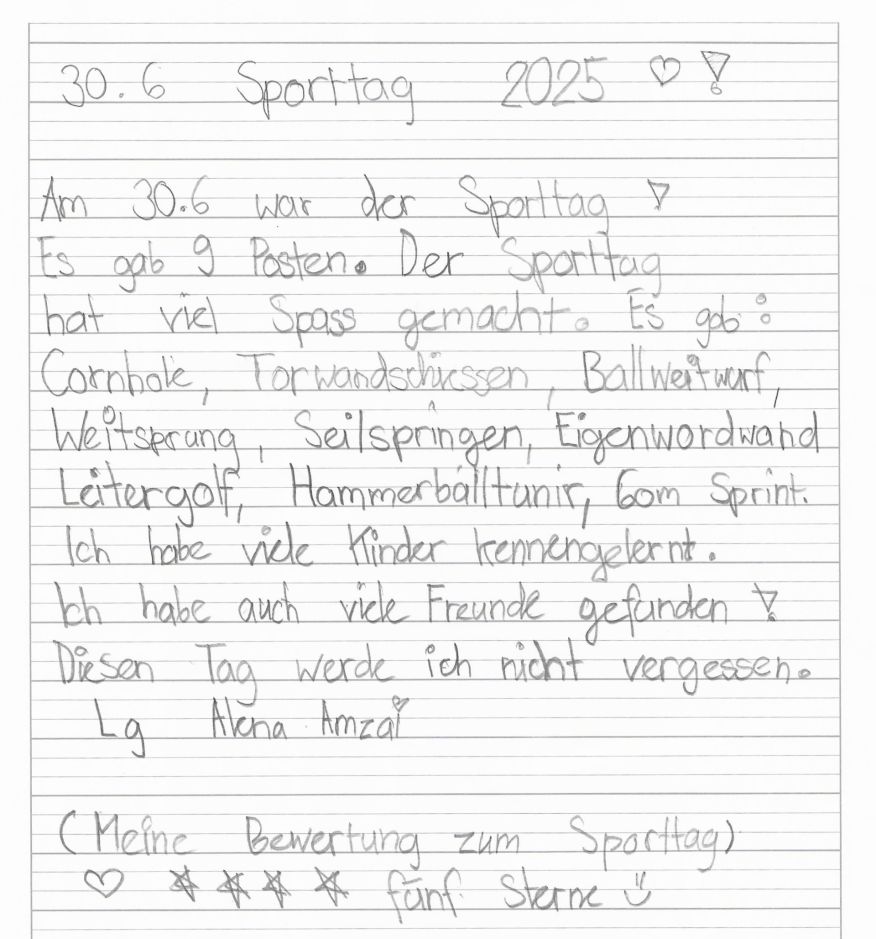 30.6 Sporttag 2025 ♡ !
Am 30.6 war der Sporttag !
Es gab 9 Posten. Der Sporttag
hat viel Spass gemacht. Es gab :
Cornhole, Torwandschiessen, Ballweitwurf,
Weitsprung, Seilspringen, Eigenwordwand
Leitergolf, Hammerballtunir, 60m Sprint.
Ich habe viele Kinder kennengelernt.
Ich habe auch viele Freunde gefunden !
Diesen Tag werde ich nicht vergessen.
Lg Alena Amzai
(Meine Bewertung zum Sporttag)
♡ ☆ ☆ ☆ ☆ fünf Sterne ☺